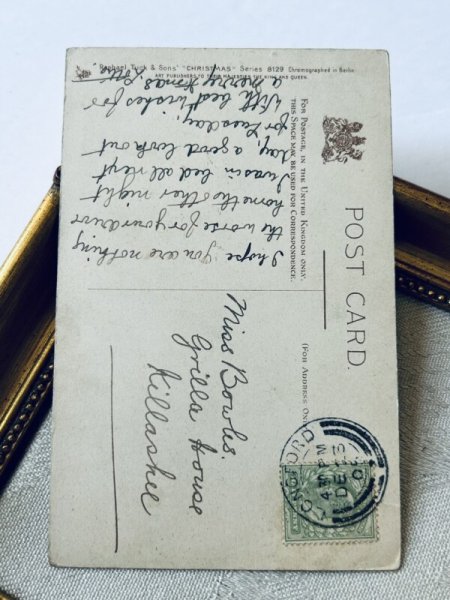 POST CARD.
FOR POSTAGE, IN THE UNITED KINGDOM ONLY,
THIS SPACE MAY BE USED FOR CORRESPONDENCE.
(FOR ADDRESS ON
I hope you are nothing
the worse for your drive
home the other night
I was in bed all
day, a good look out
for Tuesday,
With best wishes for
a merry Xmas.
Raphael Tuck & Sons' "CHRISTMAS" Series 8129 Chromographed in Berlin
ART PUBLISHERS TO THEIR MAJESTIES THE KING AND QUEEN.
Miss Bowles
Grilla House
Killashee
LONGFORD
PM
DE